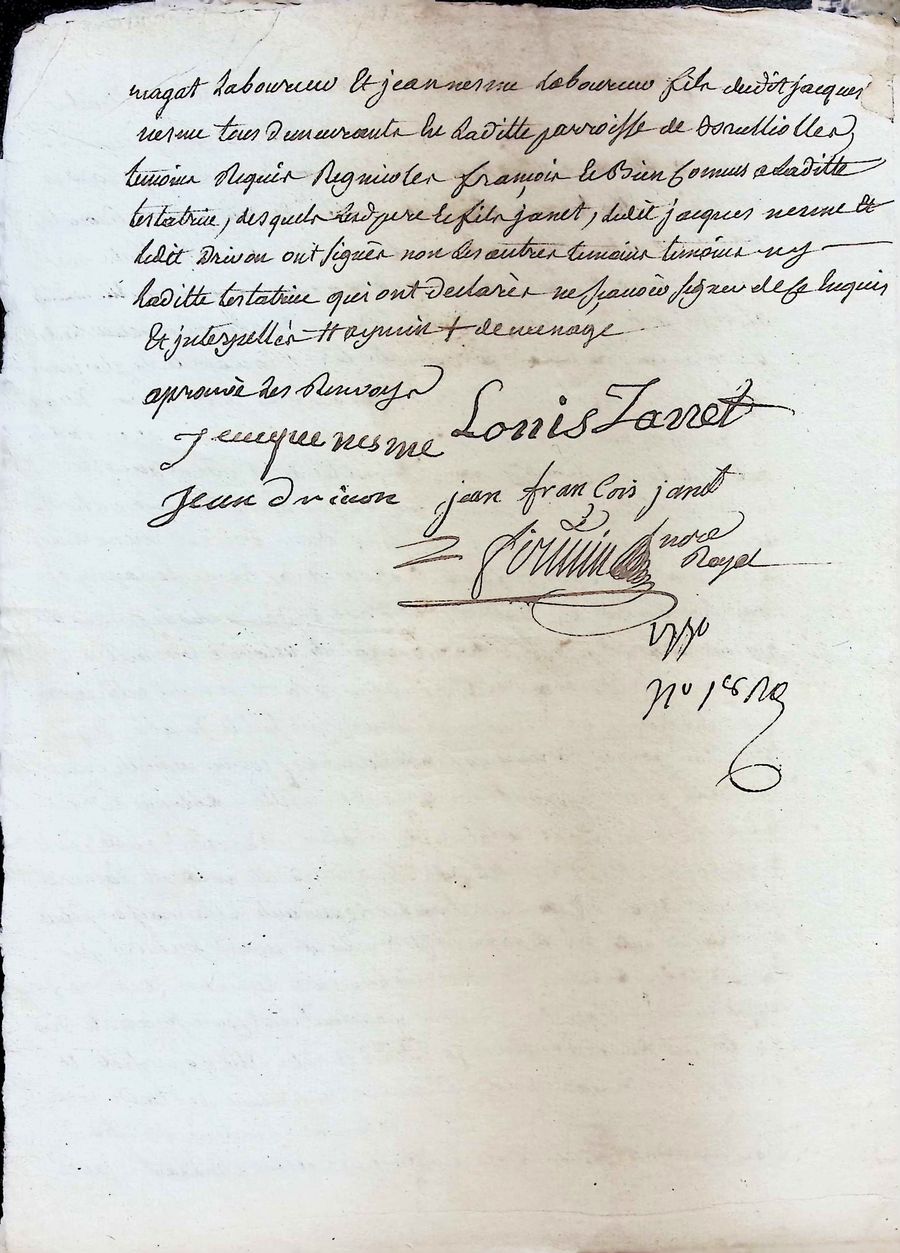 magat Laboureur Et jean nesme Laboureur fils dudit jacques
nesme tous demeurants En Laditte parroisse de
temoins Requis Regnicoles françois Et Bien Connus a Laditte
testatrice, desquels Lesd pere Et fils janet, ledit jacques nesme Et
ledit Drivon ont signés non Les autres temoins temoins ny
Laditte testatrice qui ont declarés ne sçavoir signer de ce Enquis
Et interpellés # + de menage
aprouvé Les Renvoys
Jacque nesme Louis Janet
Jean drivon jean francois janet
nore
Royal
1770